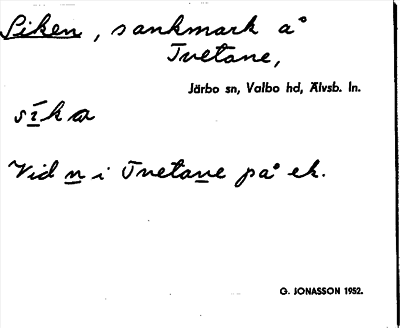 Siken, sankmark å
Tvetane,
Järbo sn, Valbo hd, Älvsb. ln.
síka
Vid n i Tvetane på ek.
G. JONASSON 1952.